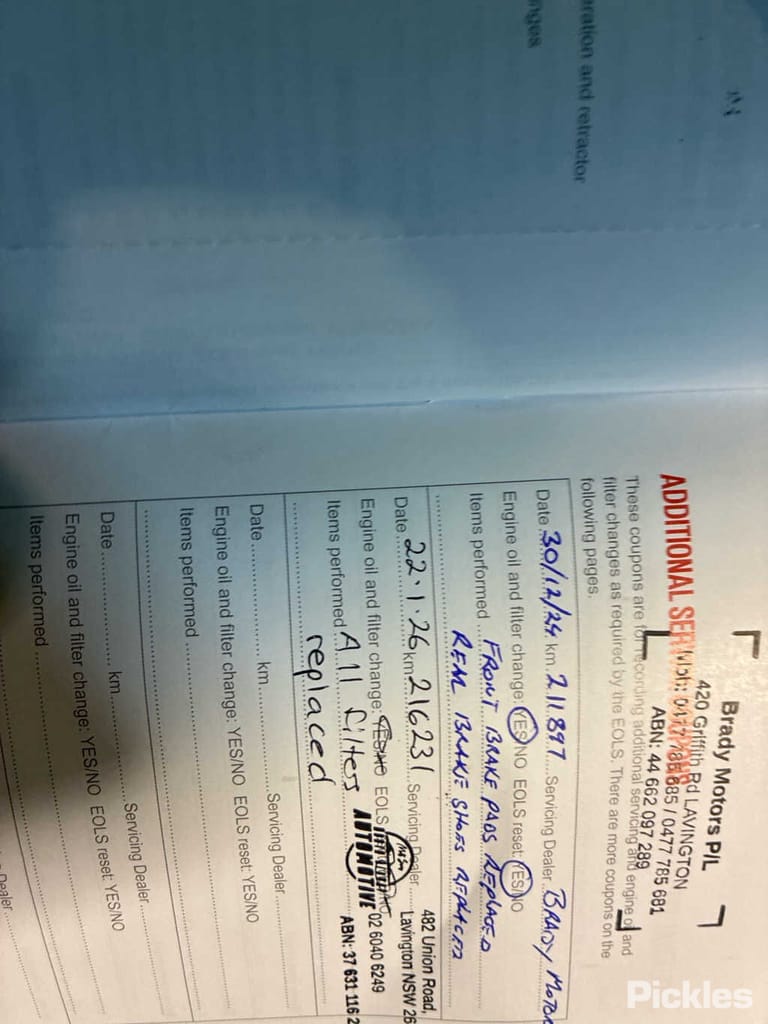 aration and retractor
nges
Brady Motors P/L
420 Griffith Rd LAVINGTON
Mbh: 0477 785 685 / 0477 785 681
ABN: 44 662 097 289
ADDITIONAL SER
These coupons are for recording additional servicing and engine oil and
filter changes as required by the EOLS. There are more coupons on the
following pages.
Date 30/12/24 km 211.897 Servicing Dealer BRADY MOTOR
Engine oil and filter change: YES/NO EOLS reset: YES/NO
Items performed FRONT BRAKE PADS REPLACED
REAL BRAKE SHOES REPLACED
Date 22.1.26 km 216231 Servicing Dealer
Engine oil and filter change: YES/NO EOLS
Items performed All filters
replaced
482 Union Road,
Lavington NSW 26
AUTOMOTIVE 02 6040 6249
ABN: 37 631 116 2
Date km Servicing Dealer
Engine oil and filter change: YES/NO EOLS reset: YES/NO
Items performed
Date km Servicing Dealer
Engine oil and filter change: YES/NO EOLS reset: YES/NO
Items performed
Dealer
Pickles